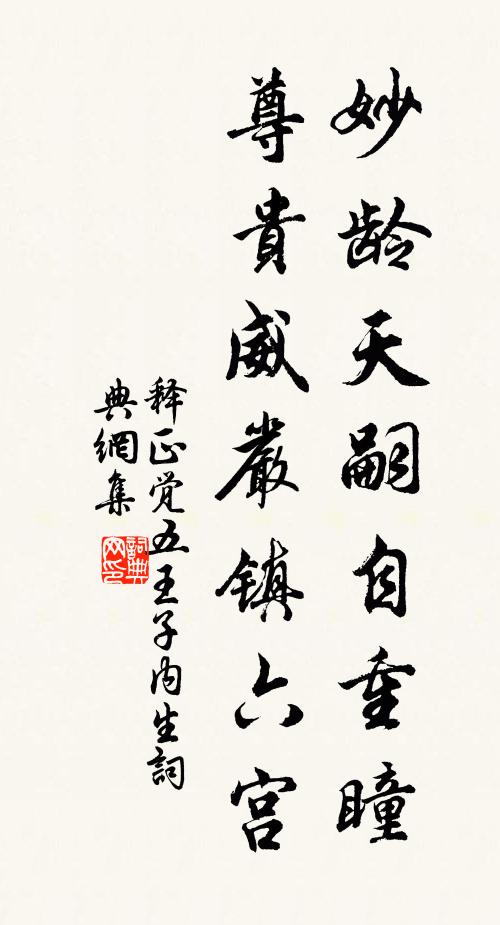 妙龄天嗣自重瞳
尊貴威嚴镇六宫
释正觉五王子内生詞
典網集
詞典网印